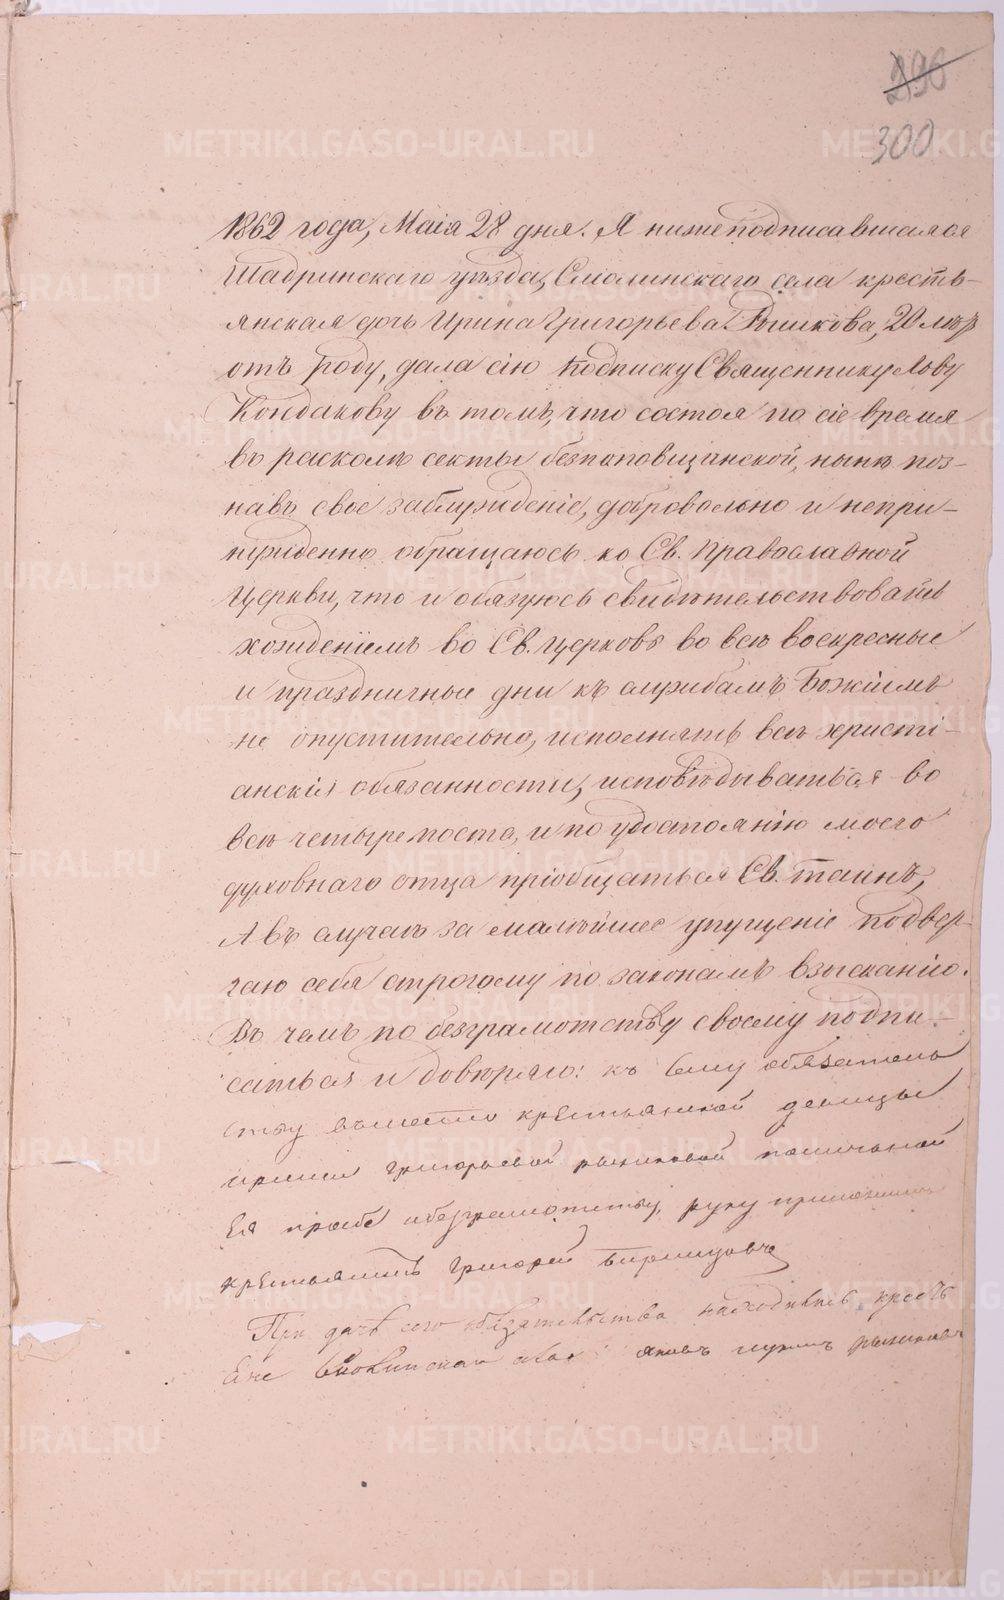 296
300
1862 года, Маія 28 дня. Я нижеподписавшаяся
Шадринскаго уѣзда, Смолинскаго села кресть-
янская дочь Ирина Григорьева Рычкова, 20 лѣтъ
отъ роду, дала сію подписку Священнику Льву
Кондакову въ томъ, что состоя по сіе время
въ расколѣ секты безпоповщинской, нынѣ поз-
навъ свое заблужденіе, добровольно и непри-
нужденно обращаюсь ко Св. Православной
Церкви, что и обязуюсь свидѣтельствовать
хожденіемъ во Св. Церковь во всѣ воскресные
и праздничные дни къ службамъ Божіимъ
не опустительно, исполнять всѣ христі-
анскія обязанности, исповѣдываться во
всѣ четыре поста, и по удостоянію моего
духовнаго отца пріобщаться Св. Таинъ,
А въ случаѣ за малѣйшее упущеніе подвер-
гаю себя строгому по законамъ взысканію.
Въ чемъ по безграмотству своему подпи-
саться и довѣряю: къ сему обязатель
ству крестьянской девицы
Григорьевой
Ея прозбе руку приложилъ
крестьянинъ Григорей
При дачѣ сего обязательства находились крестъ
Яковъ